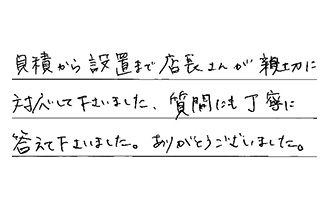 見積から設置まで店長さんが親切に
対応して下さいました、質問にも丁寧に
答えて下さいました。ありがとうございました。